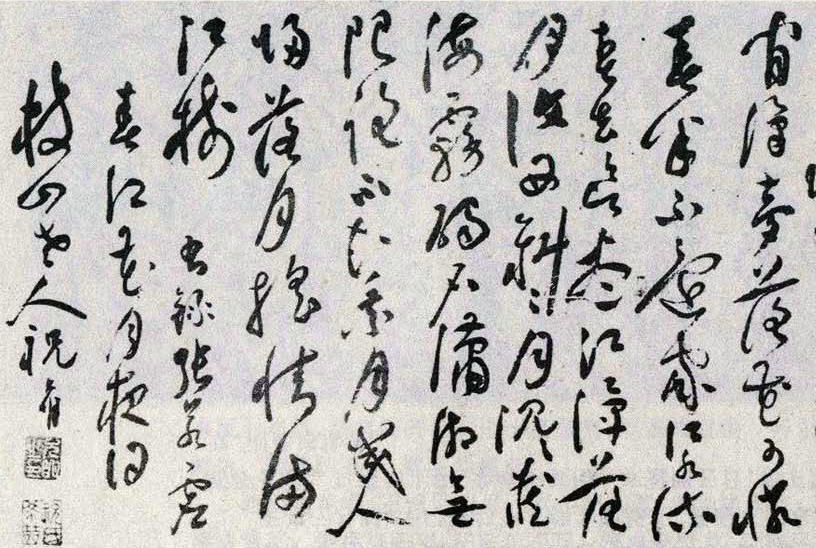 閒潭夢落花可憐
春半不還家江水流
春去欲盡江潭落
月復西斜〻月沉〻藏
海霧碣石瀟湘無
限路不知乘月幾人
歸落月搖情滿
江樹 右錄張若虛
春江花月夜詞
枝山老人祝允明